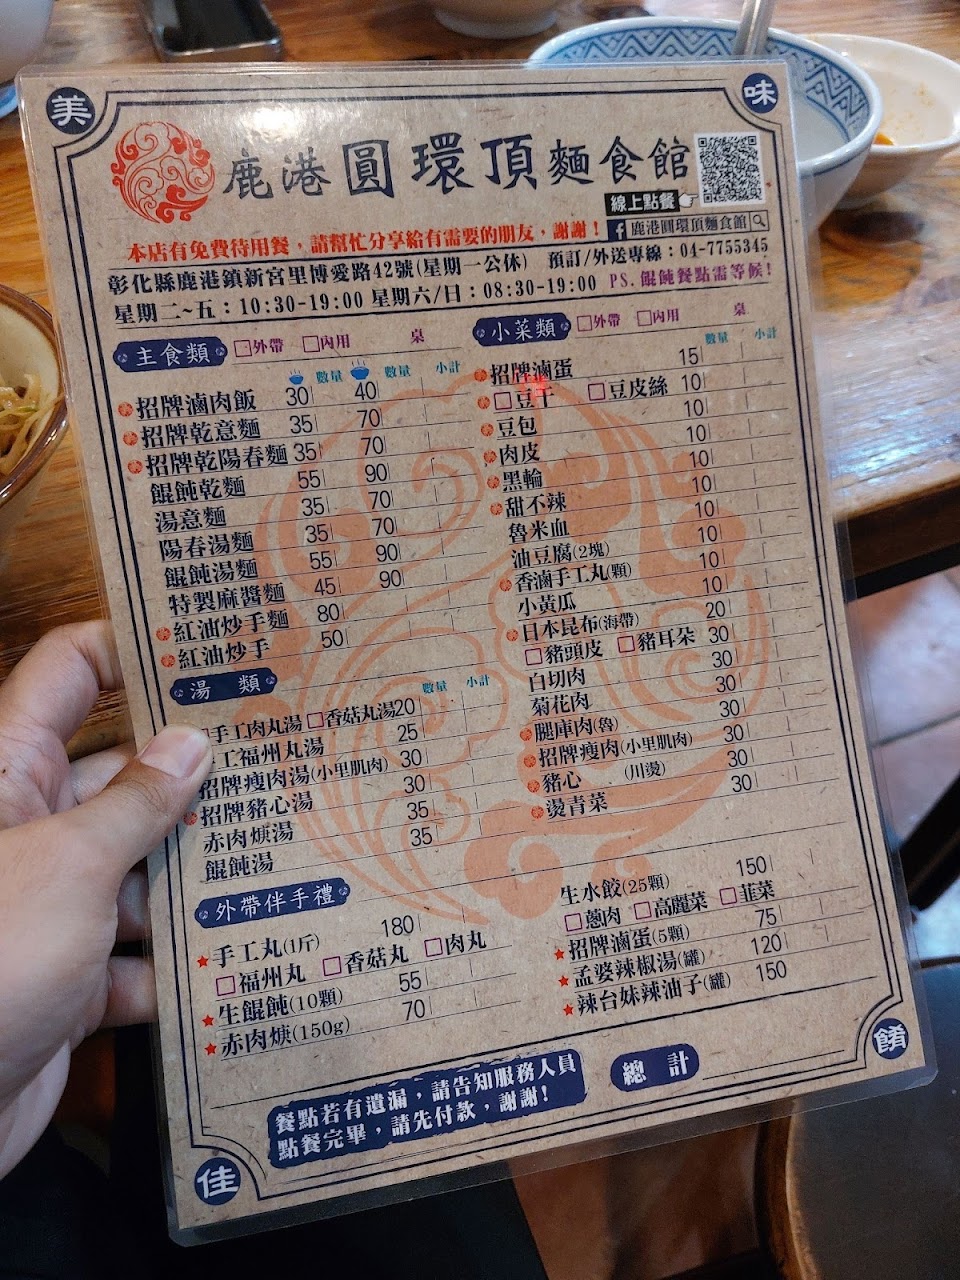 美
味
鹿港圓環頂麵食館
線上點餐
本店有免費待用餐，請幫忙分享給有需要的朋友，謝謝！
f 鹿港圓環頂麵食館
彰化縣鹿港鎮新宮里博愛路42號(星期一公休) 預訂/外送專線：04-7755345
星期二~五：10:30-19:00 星期六/日：08:30-19:00 PS. 餛飩餐點需等候!
主食類 □外帶 □內用 桌
數量 數量 小計
招牌滷肉飯 30 40
招牌乾意麵 35 70
招牌乾陽春麵 35 70
餛飩乾麵 55 90
湯意麵 35 70
陽春湯麵 35 70
餛飩湯麵 55 90
特製麻醬麵 45 90
紅油炒手麵 80
紅油炒手 50
湯類
數量 小計
手工肉丸湯 □香菇丸湯 20
工福州丸湯 25
招牌瘦肉湯(小里肌肉) 30
招牌豬心湯 30
赤肉焿湯 35
餛飩湯 35
小菜類 □外帶 □內用 桌
數量 小計
招牌滷蛋 15
□豆干 □豆皮絲 10
豆包 10
肉皮 10
黑輪 10
甜不辣 10
魯米血 10
油豆腐(2塊) 10
香滷手工丸(顆) 10
小黃瓜 10
日本昆布(海帶) 20
□豬頭皮 □豬耳朵 30
白切肉 30
菊花肉 30
腿庫肉(魯) 30
招牌瘦肉(小里肌肉) 30
豬心 (川燙) 30
燙青菜 30
外帶伴手禮
手工丸(1斤) 180
□福州丸 □香菇丸 □肉丸
生餛飩(10顆) 55
赤肉焿(150g) 70
生水餃(25顆) 150
□蔥肉 □高麗菜 □韭菜
招牌滷蛋(5顆) 75
孟婆辣椒湯(罐) 120
辣台妹辣油子(罐) 150
餐點若有遺漏，請告知服務人員
點餐完畢，請先付款，謝謝!
總計
佳
餚